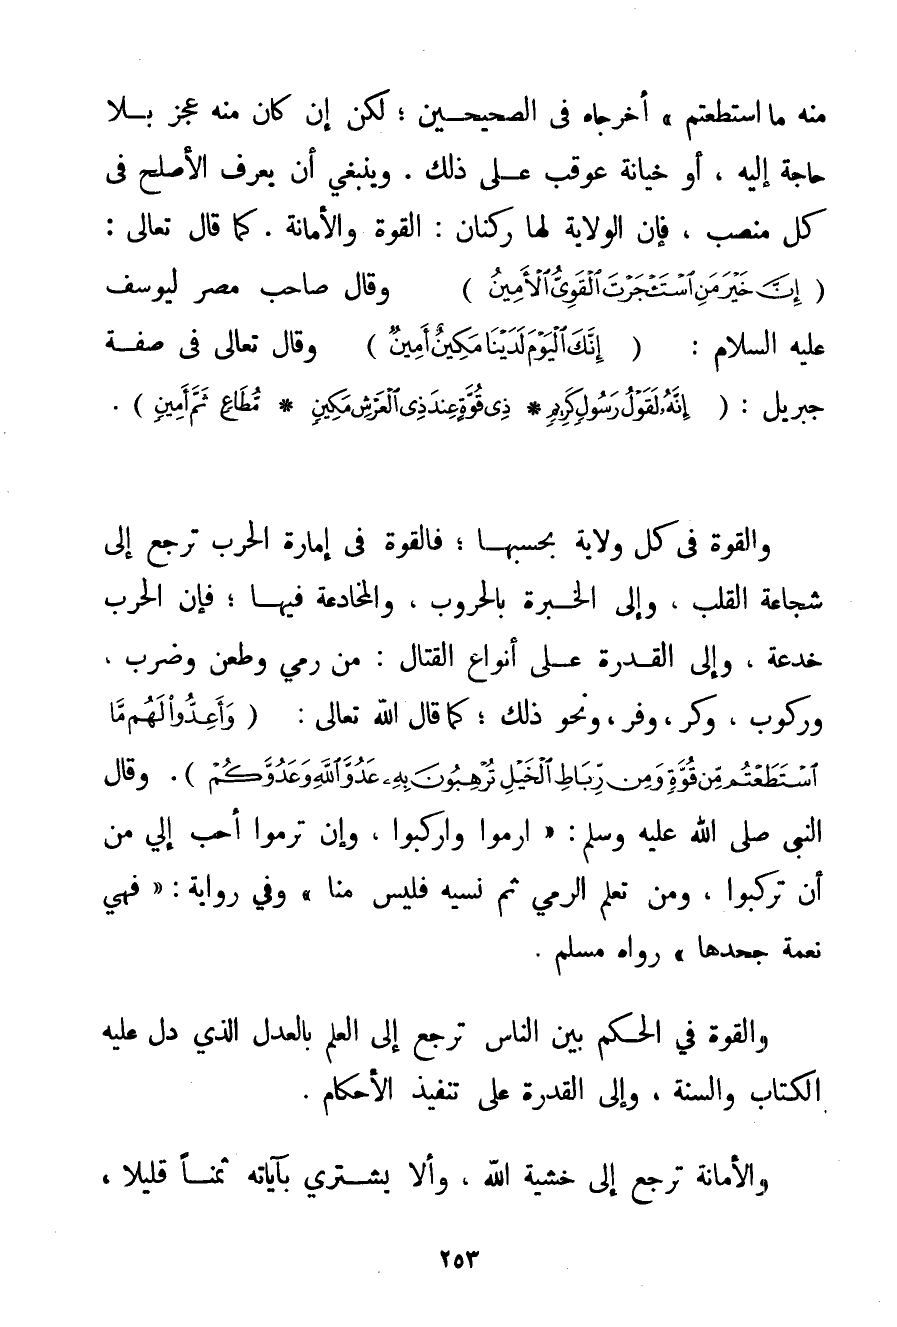 منه ما استطعتم » أخرجاه فى الصحيحين ؛ لكن إن كان منه عجز بلا
حاجة إليه ، أو خيانة عوقب على ذلك . وينبغي أن يعرف الأصلح فى
كل منصب ، فإن الولاية لها ركنان : القوة والأمانة . كما قال تعالى :
( إِنَّ خَيْرَ مَنِ ٱسْتَـْٔجَرْتَ ٱلْقَوِىُّ ٱلْأَمِينُ ) وقال صاحب مصر ليوسف
عليه السلام : ( إِنَّكَ ٱلْيَوْمَ لَدَيْنَا مَكِينٌ أَمِينٌ ) وقال تعالى فى صفة
جبريل : ( إِنَّهُۥ لَقَوْلُ رَسُولٍ كَرِيمٍ * ذِى قُوَّةٍ عِندَ ذِى ٱلْعَرْشِ مَكِينٍ * مُّطَاعٍ ثَمَّ أَمِينٍ ) .
والقوة فى كل ولاية بحسبها ؛ فالقوة فى إمارة الحرب ترجع إلى
شجاعة القلب ، وإلى الخبرة بالحروب ، والمخادعة فيها ؛ فإن الحرب
خدعة ، وإلى القدرة على أنواع القتال : من رمي وطعن وضرب ،
وركوب ، وكر ، وفر ، ونحو ذلك ؛ كما قال الله تعالى : ( وَأَعِدُّوا۟ لَهُم مَّا
ٱسْتَطَعْتُم مِّن قُوَّةٍ وَمِن رِّبَاطِ ٱلْخَيْلِ تُرْهِبُونَ بِهِۦ عَدُوَّ ٱللَّهِ وَعَدُوَّكُمْ ) . وقال
النبى صلى الله عليه وسلم : « ارموا واركبوا ، وإن ترموا أحب إلي من
أن تركبوا ، ومن تعلم الرمي ثم نسيه فليس منا » وفي رواية : « فهي
نعمة جحدها » رواه مسلم .
والقوة في الحكم بين الناس ترجع إلى العلم بالعدل الذي دل عليه
الكتاب والسنة ، وإلى القدرة على تنفيذ الأحكام .
والأمانة ترجع إلى خشية الله ، وألا يشتري بآياته ثمناً قليلا ،
٢٥٣